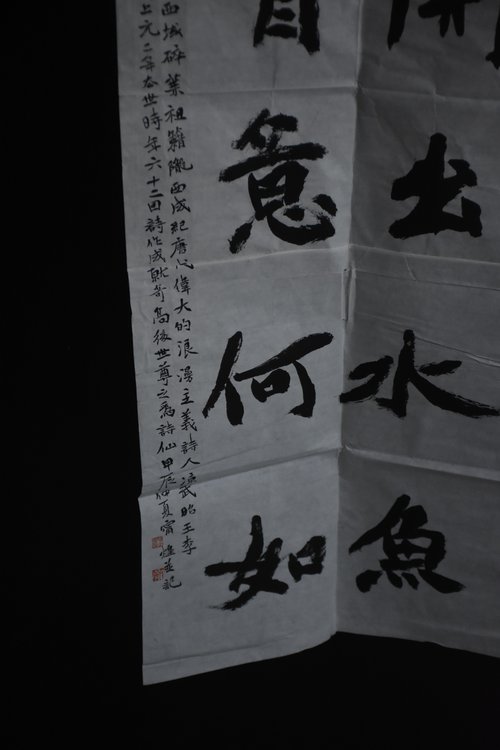 出水魚
意何如
西域碎葉祖籍隴西成紀唐代偉大的浪漫主義詩人涼武昭王李
上元二年去世時年六十二因詩作成就奇高後世尊之為詩仙甲辰仲夏並記